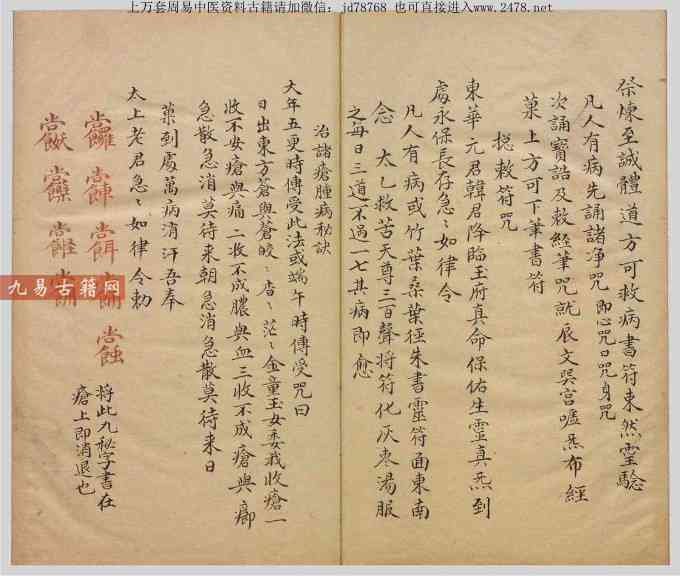 上万套周易中医资料古籍请加微信：jd78768 也可直接进入www.2478.net
祭煉至誠體道方可救病書符東然靈驗
凡人有病先誦諸净咒即心咒口咒身咒
次誦寶誥及敕經筆咒就辰文巽宫噓炁布經
菓上方可下筆書符
捴敕符咒
東華元君韓君降臨玉府真命保佑生靈真炁到
處永保長存急〻如律令
凡人有病或竹葉桑葉徑朱書靈符面東南
念太乙救苦天尊三百聲將符化灰枣湯服
之每日三道不過一七其病即愈
治諸瘡腫病秘訣
大年五更時傳受此法或端午時傳受咒曰
日出東方蒼與蒼皎〻杳〻茫〻金童玉女委我收瘡一
收不安瘡與痛二收不成膿與血三收不成瘡與癤
急散急消莫待来朝急消急散莫待来日
藥到處萬病消汗吾奉
太上老君急〻如律令勅
將此九秘字書在
瘡上即消退也
九易古籍网